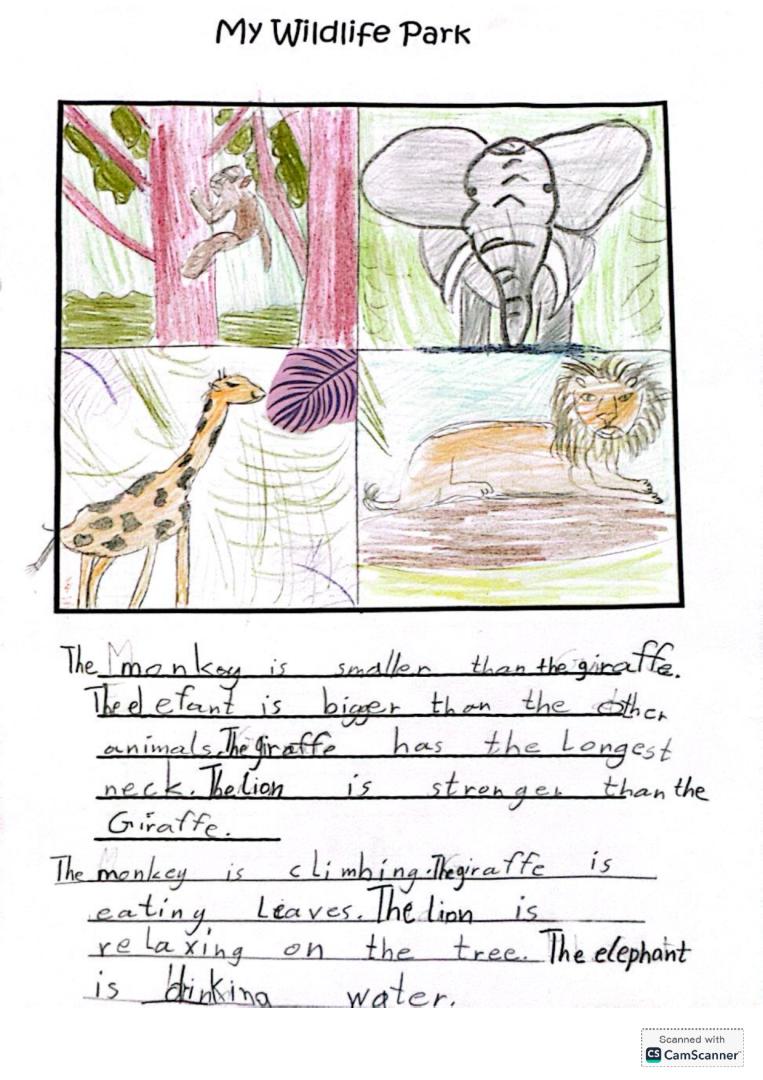 My Wildlife Park
The monkey is smaller than the giraffe.
The elefant is bigger than the other
animals. The giraffe has the Longest
neck. The Lion is stronger than the
Giraffe.
The monkey is climbing. The giraffe is
eating Leaves. The lion is
relaxing on the tree. The elephant
is drinking water.
Scanned with
CS CamScanner